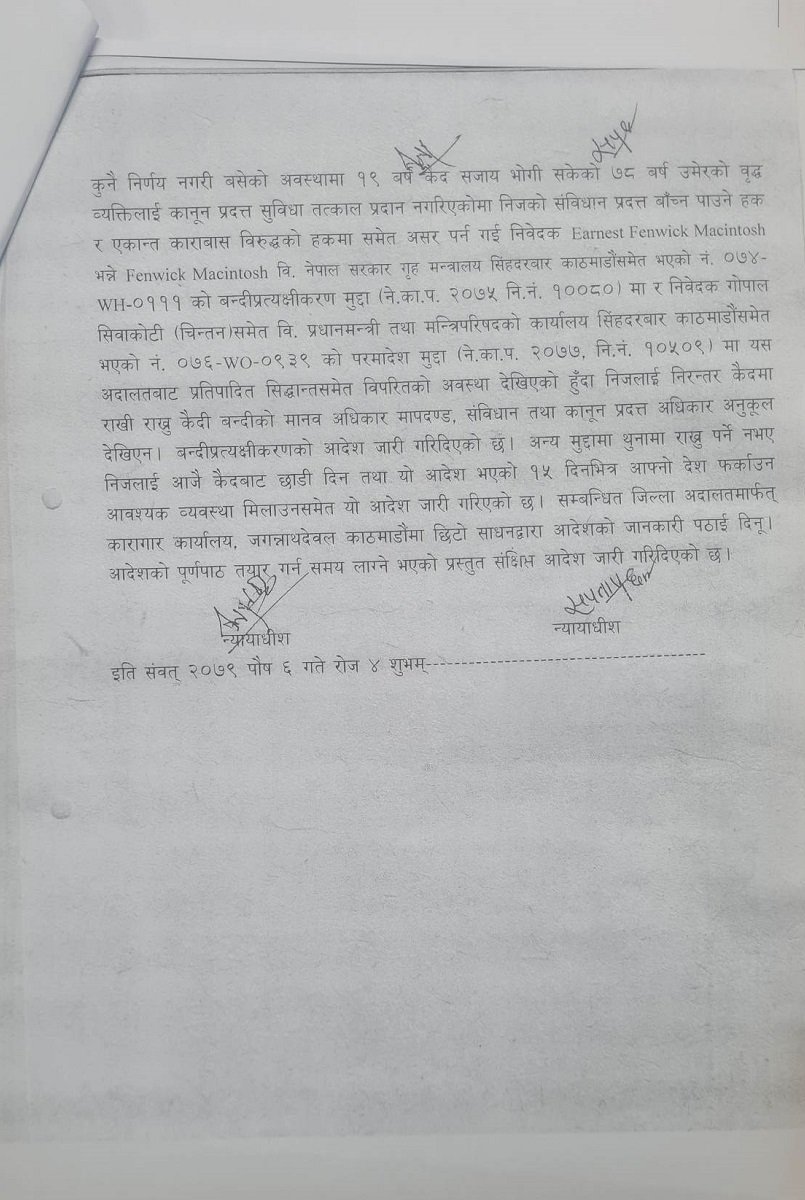 कुनै निर्णय नगरी बसेको अवस्थामा १९ बर्ष कैद सजाय भोगी सकेको ७८ बर्ष उमेरको वृद्ध
व्यक्तिलाई कानून प्रदत्त सुविधा तत्काल प्रदान नगरिएकोमा निजको संविधान प्रदत्त बाँच्न पाउने हक
र एकान्त काराबास विरुद्धको हकमा समेत असर पर्न गई निवेदक Earnest Fenwick Macintosh
भन्ने Fenwick Macintosh वि. नेपाल सरकार गृह मन्त्रालय सिंहदरबार काठमाडौंसमेत भएको नं. ०७४-
WH-०१११ को बन्दीप्रत्यक्षीकरण मुद्दा (ने.का.प. २०७५ नि.नं. १००८०) मा र निवेदक गोपाल
सिवाकोटी (चिन्तन)समेत वि. प्रधानमन्त्री तथा मन्त्रिपरिषदको कार्यालय सिंहदरबार काठमाडौंसमेत
भएको नं. ०७६-WO-०९३९ को परमादेश मुद्दा (ने.का.प. २०७७, नि.नं. १०५०९) मा यस
अदालतबाट प्रतिपादित सिद्धान्तसमेत विपरितको अवस्था देखिएको हुँदा निजलाई निरन्तर कैदमा
राखी राख्नु कैदी बन्दीको मानव अधिकार मापदण्ड, संविधान तथा कानून प्रदत्त अधिकार अनुकूल
देखिएन। बन्दीप्रत्यक्षीकरणको आदेश जारी गरिदिएको छ। अन्य मुद्दामा थुनामा राख्नु पर्ने नभए
निजलाई आजै कैदबाट छाडी दिन तथा यो आदेश भएको १५ दिनभित्र आफ्नो देश फर्काउन
आवश्यक व्यवस्था मिलाउनसमेत यो आदेश जारी गरिएको छ। सम्बन्धित जिल्ला अदालतमार्फत्
कारागार कार्यालय, जगन्नाथदेवल काठमाडौंमा छिटो साधनद्वारा आदेशको जानकारी पठाई दिनू।
आदेशको पूर्णपाठ तयार गर्न समय लाग्ने भएको प्रस्तुत संक्षिप्त आदेश जारी गरिदिएको छ।
न्यायाधीश न्यायाधीश
इति संवत् २०७९ पौष ६ गते रोज ४ शुभम्---------------------------------------